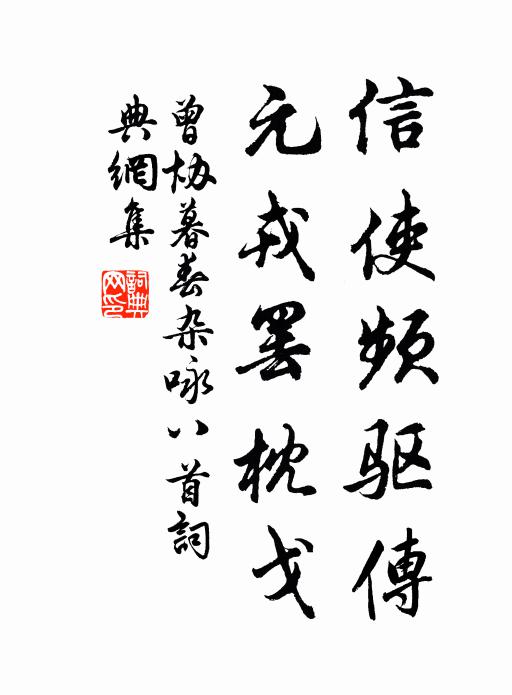 信使頻驱傳
元戎罢枕戈
曾协暮春杂咏八首詞
典網集
詞典
网印